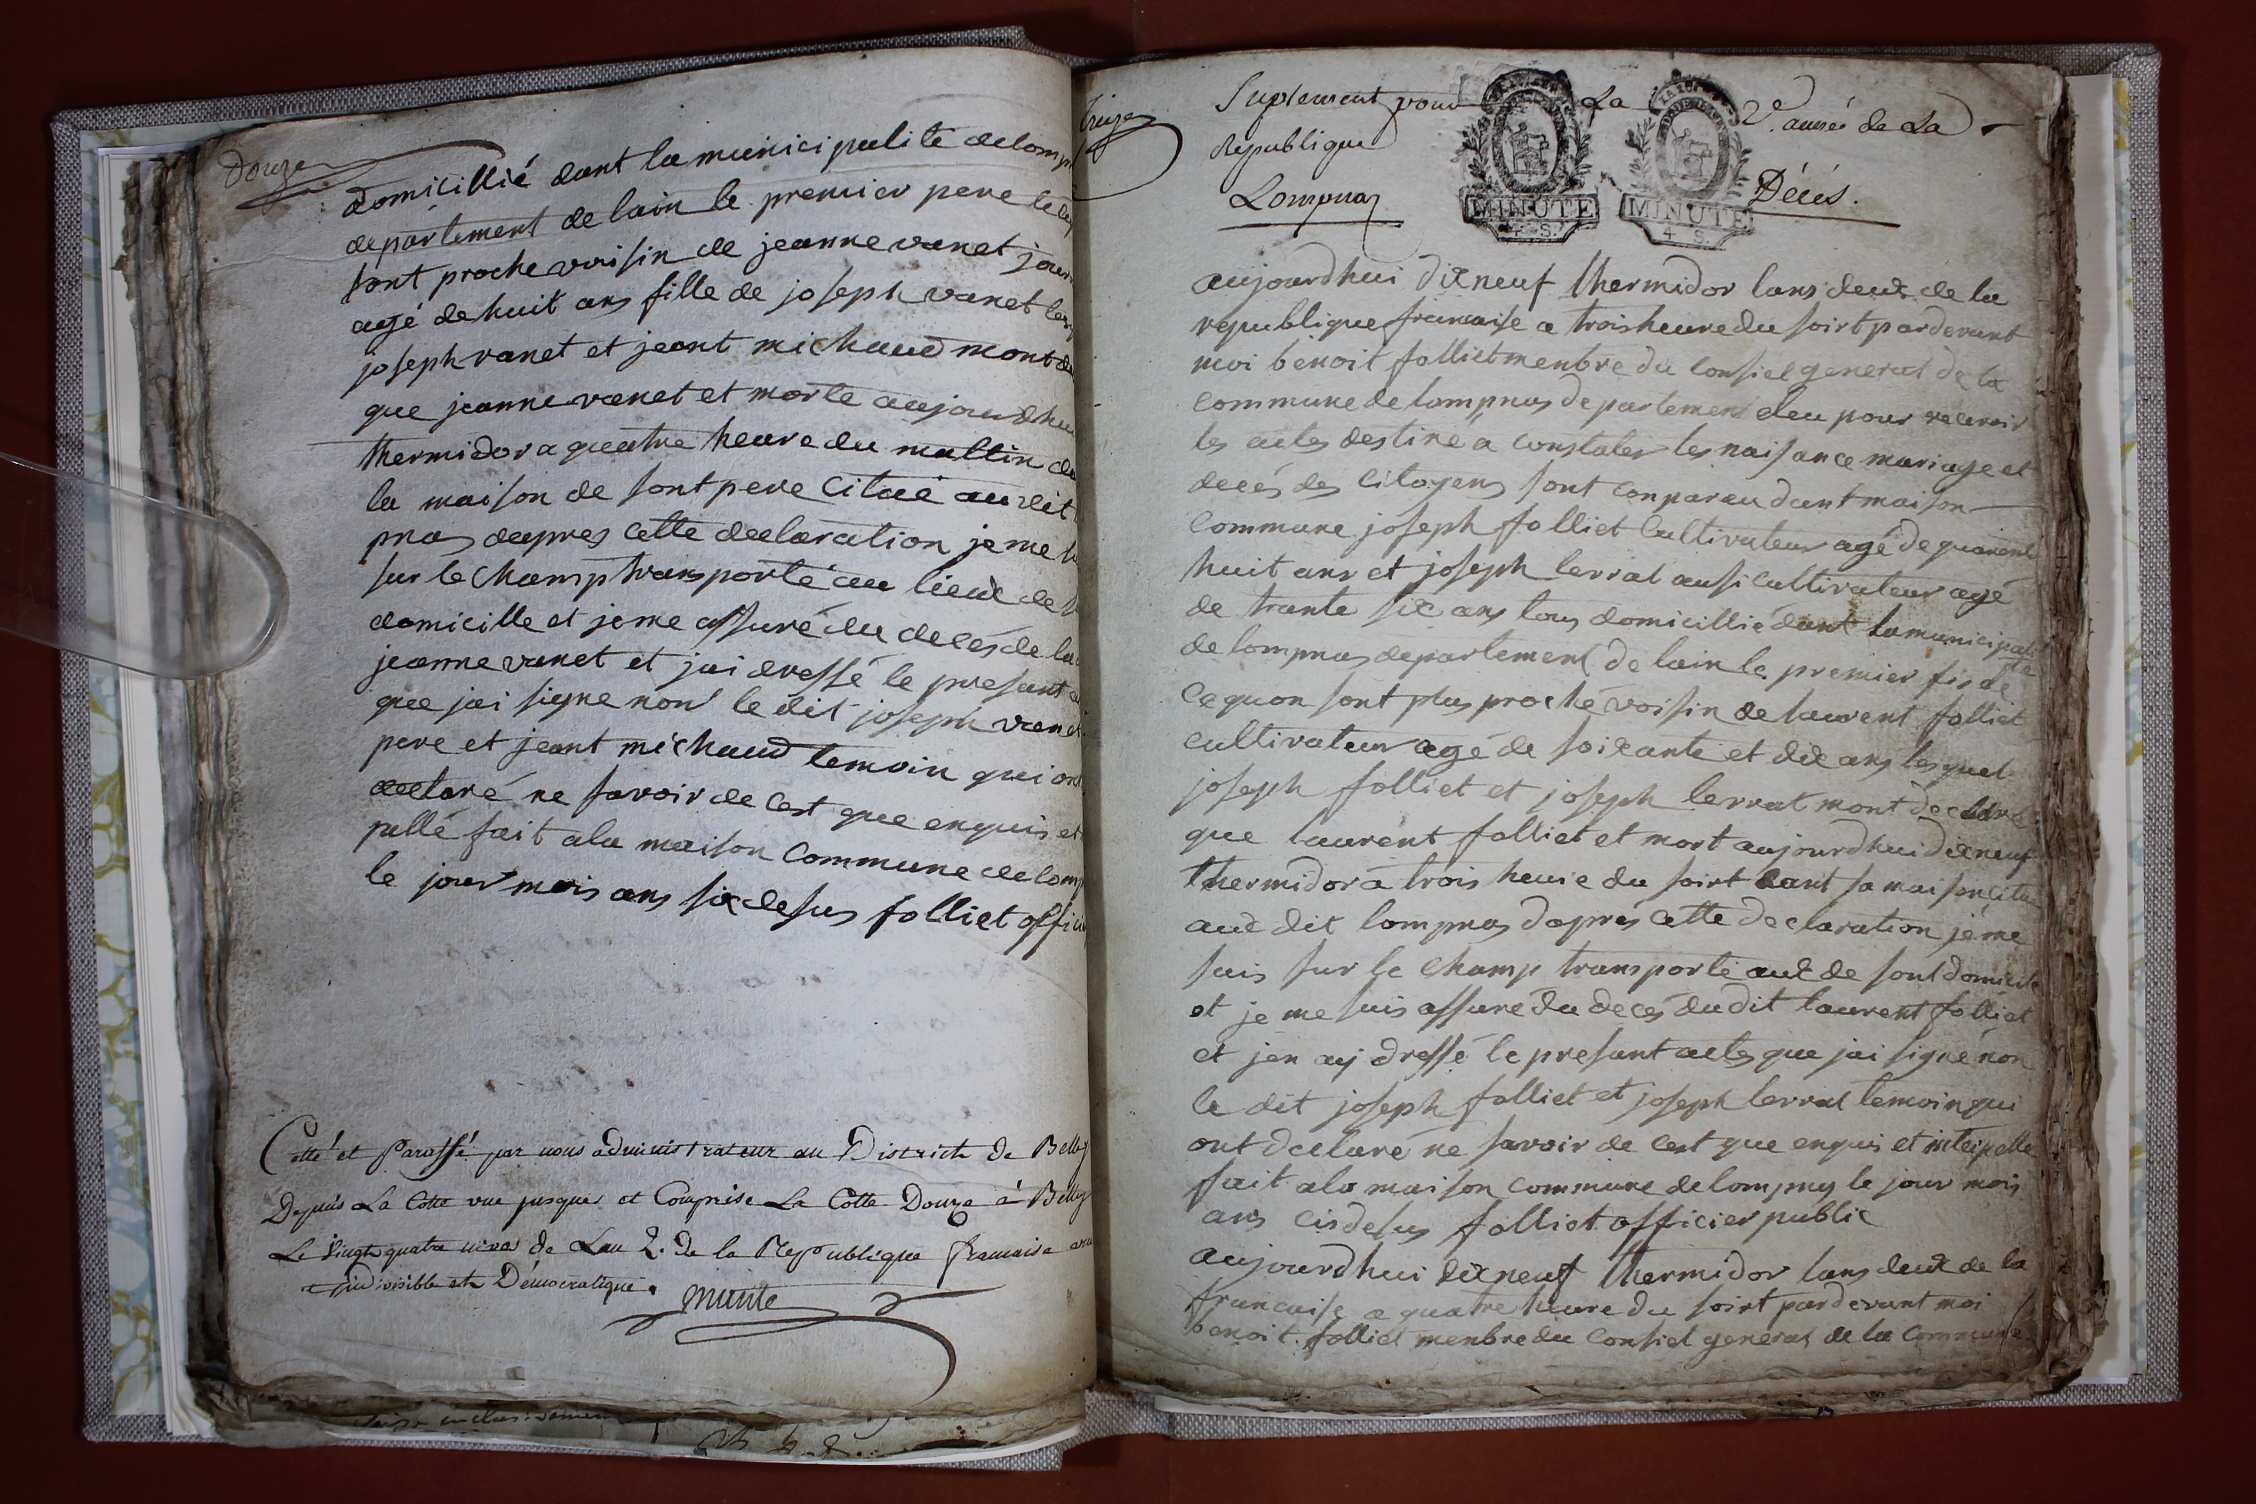 Douze
domicillié dant la municipalité de lomp
département de lain le premier pere le
sont proche voisin de jeanne vanet
agé de huit ans fille de joseph vanet
joseph vanet et jeant michaud mont
que jeanne vanet et morte aujourdhui
thermidor a quatre heure du mattin
la maison de sont pere citué au dit
pnas dapres cette declaration je me
sur le champ transporté au lieux de
domicille et je me assuré du decés de la
jeanne vanet et jai dressé le presant
que jai signe non le dit joseph vanet
pere et jeant michaud temoin qui ont
declaré ne savoir de cest que enquis et
pellé fait a la maison commune de lomp
le jour mois ans six desus folliet offici
Cotté et Paraffé par nous administrateur au District de Belley
Depuis La Cotte une jusques et Comprise La Cotte Douze à Belley
Le vingt quatre nivos de Lan 2. de la République francaise
indivisible et Démocratique. munte
Treize
Suplement pour La 2e. année de La
Republique
Lompnas Décés.
MINUTE
4 S.
MINUTE
4 S.
aujourdhui dixneuf thermidor lans deux de la
republique francaise a trois heure du soirt pardevant
moi benoit folliet menbre du consiel general de la
commune de lompnas departement eleu pour recevoir
les actes destiné a constater les naisance mariage et
decés des citoyens sont conparau dant maison
commune joseph folliet cultivateur agé de quarente
huit ans et joseph lerrat ausi cultivateur agé
de trante six ans tous domicillié dant la municipalité
de lompnas departement de lain le premier fis de
ce quon sont plus proche voisin de laurent folliet
cultivateur agé de soixante et dix ans lesquel
joseph folliet et joseph lerrat mont declaré
que laurent folliet et mort aujourdhui dixneuf
thermidor à trois heure du soirt dant sa maison citu
aux dit lompnas dapres cette declaration je me
suis sur le champ transporté aux de sont domicile
et je me suis assuré du decés dudit laurent folliet
et jen aij dressé le presant actes que jai signé non
le dit joseph folliet et joseph lerrat temoin qui
ont declaré ne savoir de cest que enquis et interpellé
fait a la maison commune de lompnas le jour mois
ans cis desus folliet officier public
aujourdhui dixneuf thermidor lans deux de la
francaise a quatre heure du soirt pardevant moi
benoit folliet menbre du consiel general de la commune